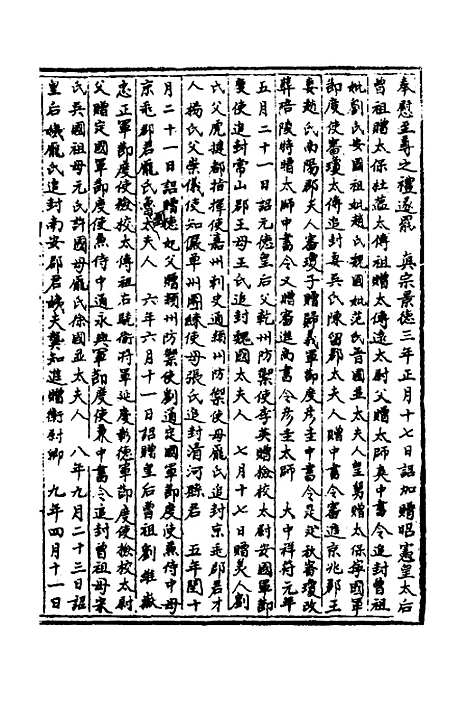 奉慰至尊之禮遂罷　真宗景德三年正月十七日詔加贈昭憲皇太后
曾祖贈太保杜蘊太傅祖贈太傅遠太尉父贈太師爽中書令追封曾祖
妣劉氏安國祖妣趙氏晉國妣范氏晉國並太夫人皇舅贈太保寧國軍
節度使審瓊太傅追封妻吳氏陳留郡太夫人贈中書令審進京兆郡王
妻趙氏南陽郡夫人審瓊子贈歸義軍節度彥圭中書令是
葬陪陵特贈太師中書令又贈審進尚書令彥圭太師　大中祥符元年
五月二十一日詔元德皇后父乾州防禦使李英贈檢校太尉安國軍節
度使追封常山郡王母王氏追封魏國太夫人　七月十七日贈美人劉
氏父虎捷都指揮使嘉州刺史通潁州防禦使母龐氏追封京兆郡君才
人楊氏父崇儀使知儼單州團練使母張氏追封清河縣君　五年閏十
月二十一日詔贈德妃父贈潁州防禦使劉通定國軍節度使兼侍中母
京兆郡君龐氏國太夫人　六年六月十一日詔贈皇后曾祖劉維嶽
忠正軍節度使檢校太傅祖右驍衛將軍延慶彰德軍節度使檢校太尉
父贈定國軍節度使兼侍中通永興軍節度使兼中書令追封曾祖母宋
氏吳國祖母元氏許國母龐氏徐國並太夫人　八年九月二十三日詔
皇后姨龐氏追封南安郡君姨夫龔知進贈衛尉卿　九年四月十一日